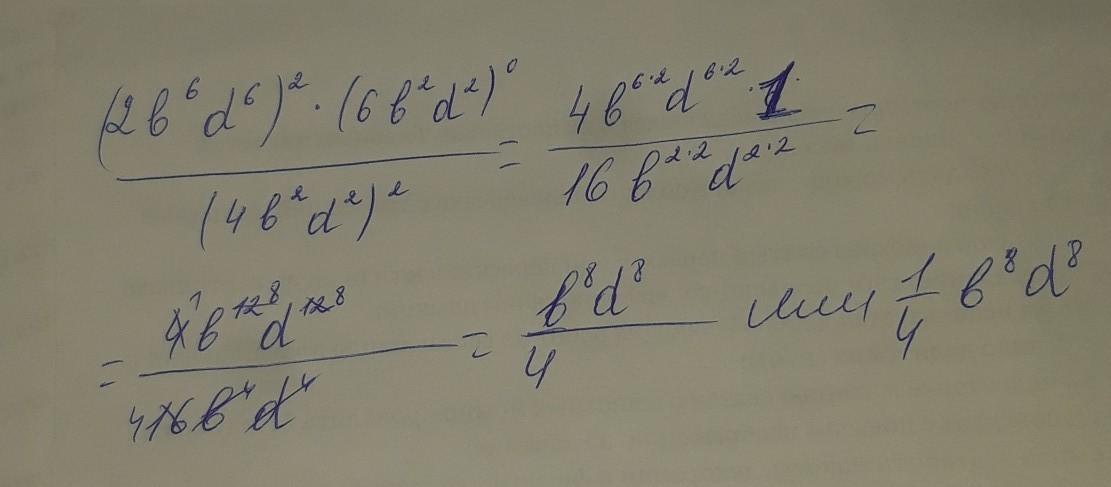 (2b⁶d⁶)²·(6b²d²)⁰ / (4b²d²)² = 4b⁶·²d⁶·²·1 / 16b²·²d²·² =
= 4̶¹b¹̶²̶⁸d¹̶²̶⁸ / 41̶6̶b̶⁴d̶⁴ = b⁸d⁸ / 4 или 1/4 b⁸d⁸